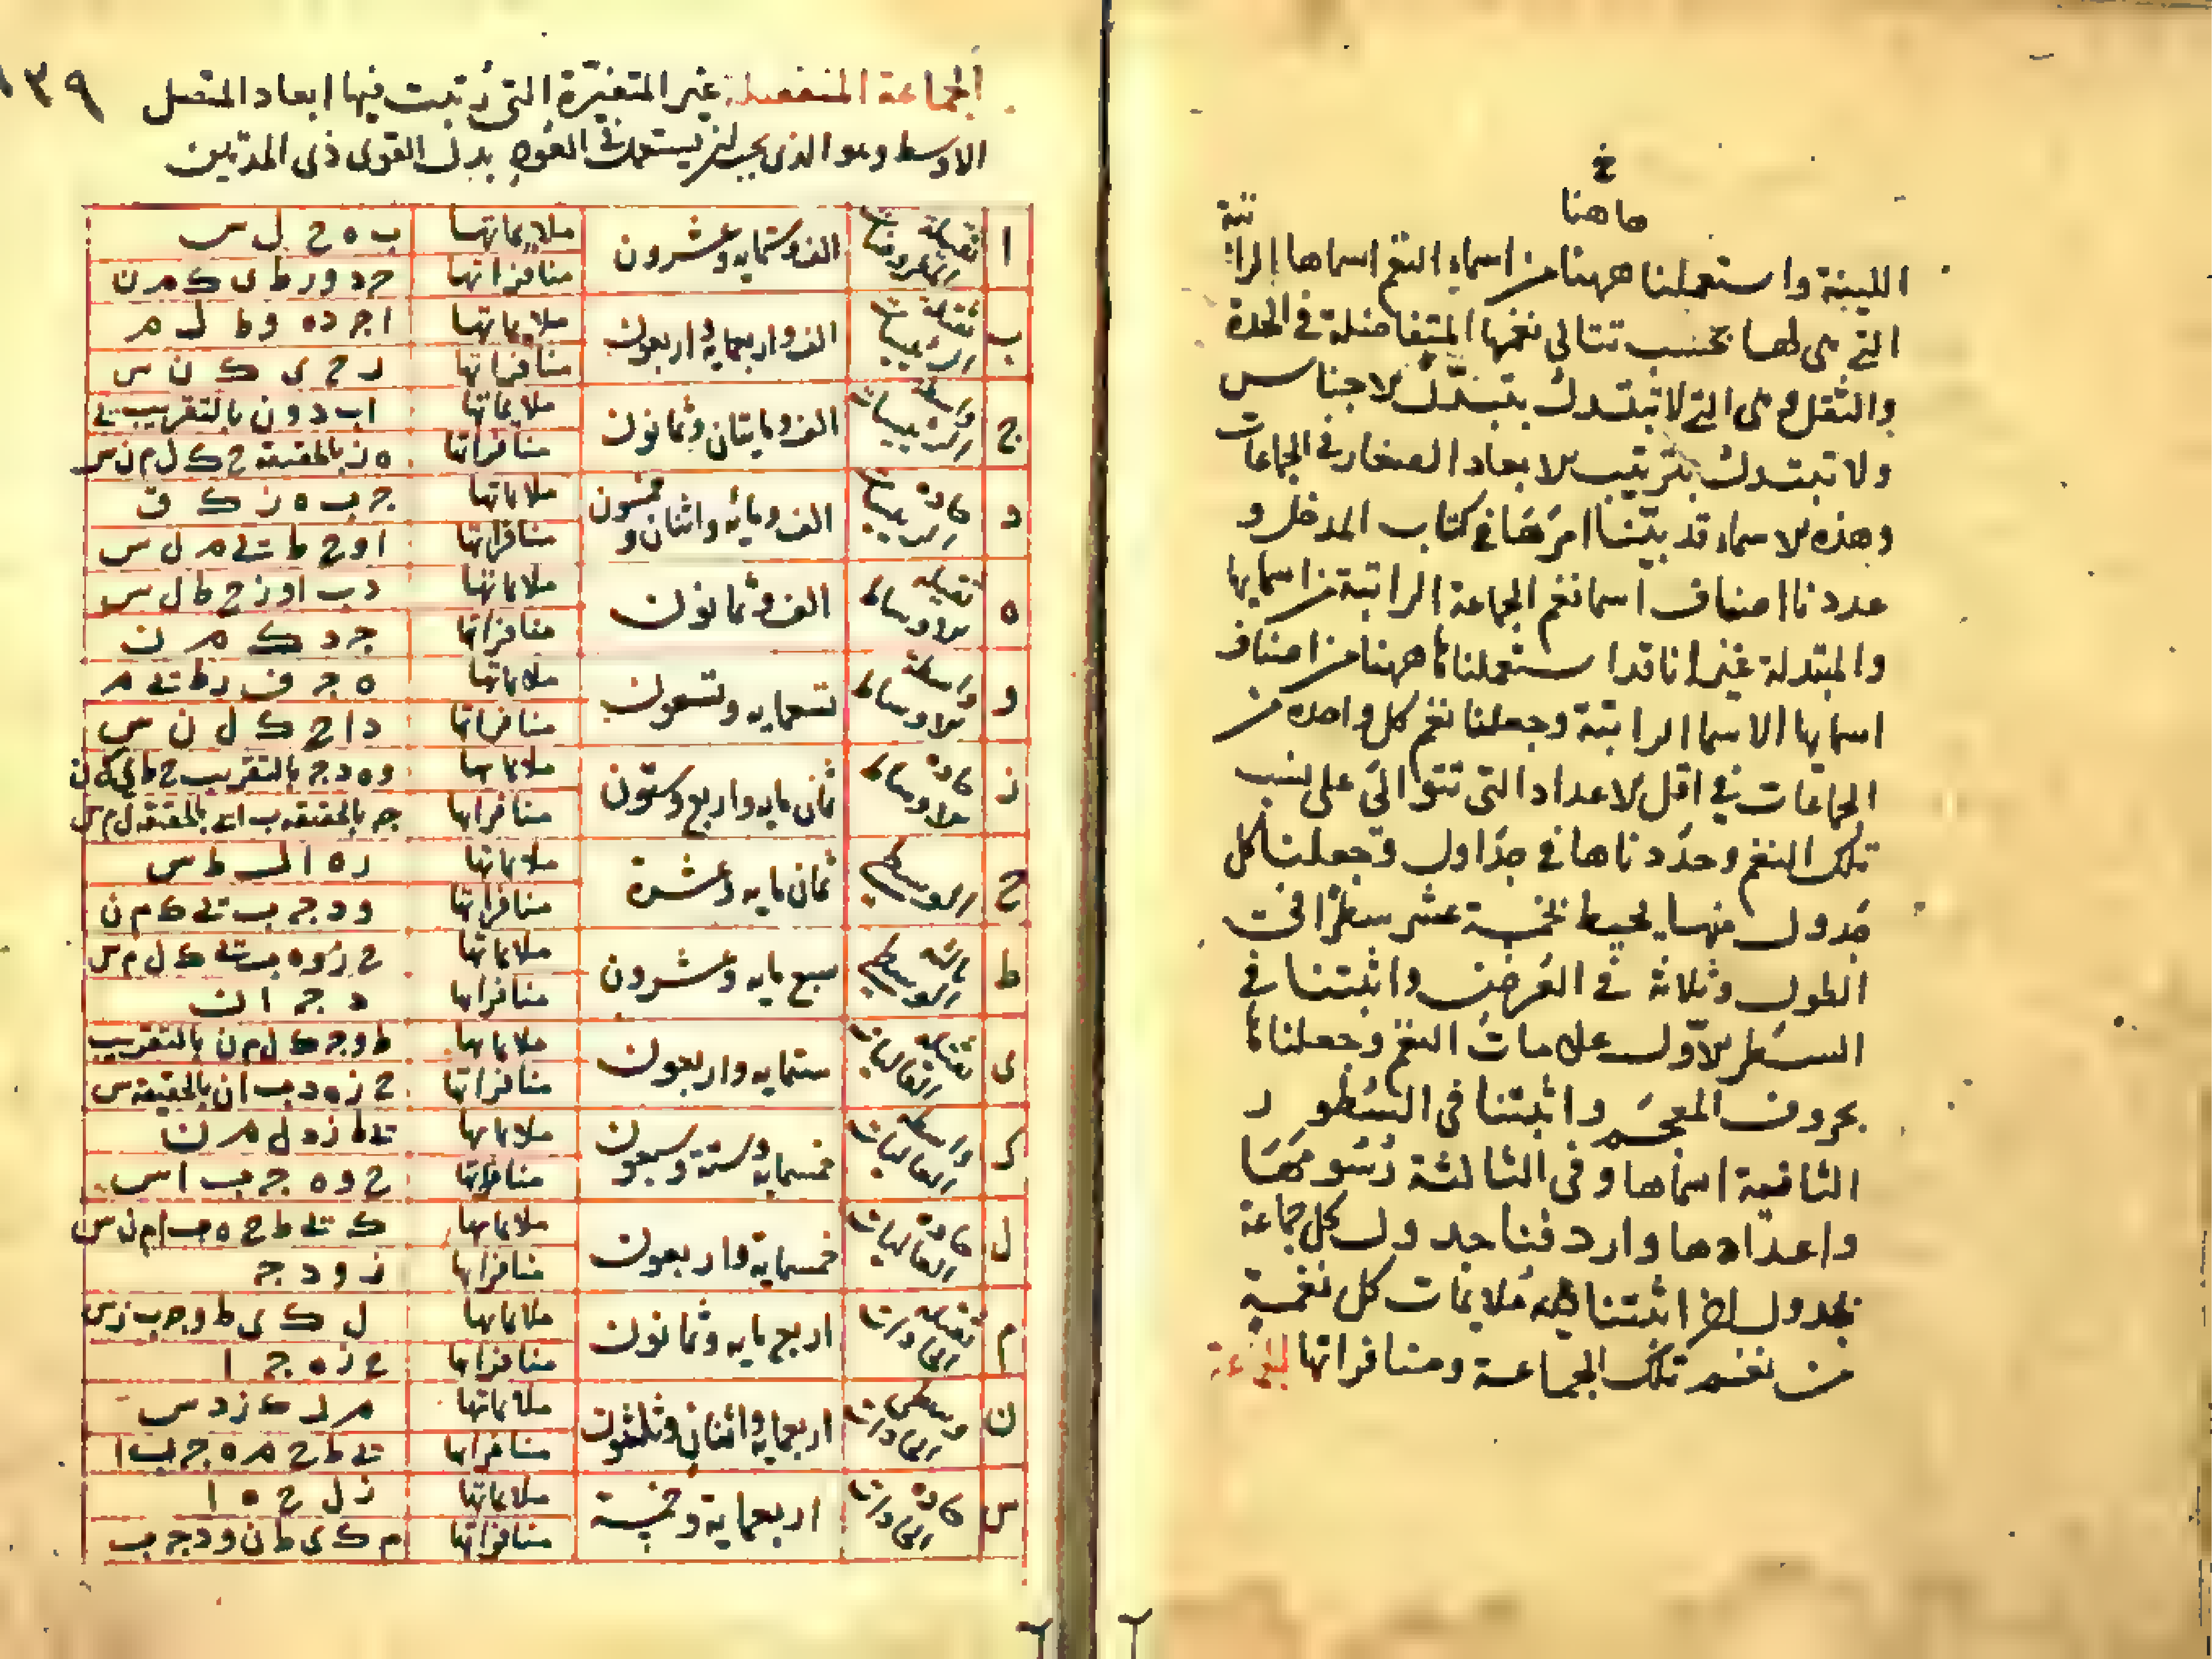 خ
هاهنا
تبة
اللينة واستعملنا ههنا من اسماء النغم اسماها الرا
التي هي لها بحسب تتالي نغمها المتفاضلة في الحدة
والثقل وهي التي لا تبتدل بتبدل الاجناس
ولا تبتدل بترتيب الابعاد الصغار في الجماعات
وهذه الاسماء قد بيّنا امرها في كتاب المدخل و
عددنا اصناف اسما نغم الجماعة الراتبة من اسمايها
والمبتدلة غير انا قد استعملنا ههنا من اصناف
اسمايها الاسما الراتبة وجعلنا نغم كل واحدة من
الجماعات في اقل الاعداد التي تتوالى على نسب
تلك النغم وحددناها في جداول وجعلنا كل
جدول منها يحيط بخمسة عشر سطرًا في
الطول وثلاثة في العرض واثبتنا في
السطر الاول علامات النغم وجعلناها
بحروف المعجم واثبتنا في السطور
الثانية اسماها وفي الثالثة رسومها
واعدادها واردفنا جدول كل جماعة
بجدول اخر اثبتنا فيه ملايمات كل نغمة
من نغم تلك الجماعة ومنافراتها الجماعة
١٣٩
الجماعة المنفصلة غير المتغيرة التي رتبت فيها ابعاد المتصل
الاوسط وهو الذي يجب ان يستعمل في القوه بدل القوى ذي المدتين
ا ثقيلة المفروضات الف وستمايه وعشرون ملايماتها ب ه ح ل س
منافراتها ج د و ز ط ى ك م ن
ب ثقيلة الرئيسات الف واربعمايه واربعون ملايماتها ا ج د ه و ط ل م
منافراتها ز ح ى ك ن س
ج واسطة الرئيسات الف ومايتان وثمانون ملايماتها ا ب د و ن بالتقريب ى
منافراتها ه ز بالحقيقة ح ك ل م ن س
د حادة الرئيسات الف ومايه واثنان وخمسون ملايماتها ج ب ه ز ك ن
منافراتها ا و ح ط ى م ل س
ه ثقيلة الاوساط الف وثمانون ملايماتها د ب ا و ز ح ط ل س
منافراتها ج د ك م ن
و واسطة الاوساط تسعمايه وتسعون ملايماتها ه ج ب ز ط ى م
منافراتها د ا ح ك ل ن س
ز حادة الاوساط ثمان مايه واربع وستون ملايماتها و ه د ج بالتقريب ح ط ى ك ن
منافراتها ج بالحقيقة ب ا ى بالحقيقة ل م س
ح الوسطى ثمان مايه وعشرة ملايماتها ز ه ا ل ط س
منافراتها و د ج ب ى ك م ن
ط تالية الوسطى سبع مايه وعشرون ملايماتها ح ز و ه ب ى ك ل م س
منافراتها د ج ا ن
ى ثقيلة العاليات ستمايه واربعون ملايماتها ط و ج ك ل م ن بالتقريب
منافراتها ح ز ه د ب ا ن بالحقيقة س
ك واسطة العاليات خمسمايه وستة وسبعون ملايماتها ى ط ز د ل م ن
منافراتها ح و ه ج ب ا س
ل حادة العاليات خمسمايه واربعون ملايماتها ك ى ط ح ه ب ا م ن س
منافراتها ز و د ج
م ثقيلة الحادات اربع مايه وثمانون ملايماتها ل ك ى ط و ج ب ن س
منافراتها ح ز ه ج ا
ن وسطى الحادات اربعمايه واثنان وثلثون ملايماتها م ل ك ز د س
منافراتها ى ط ح م ه ج ب ا
س حادة الحادات اربعمايه وخمسة ملايماتها ن ل ح ه ا
منافراتها م ك ى ط ن و د ج ب